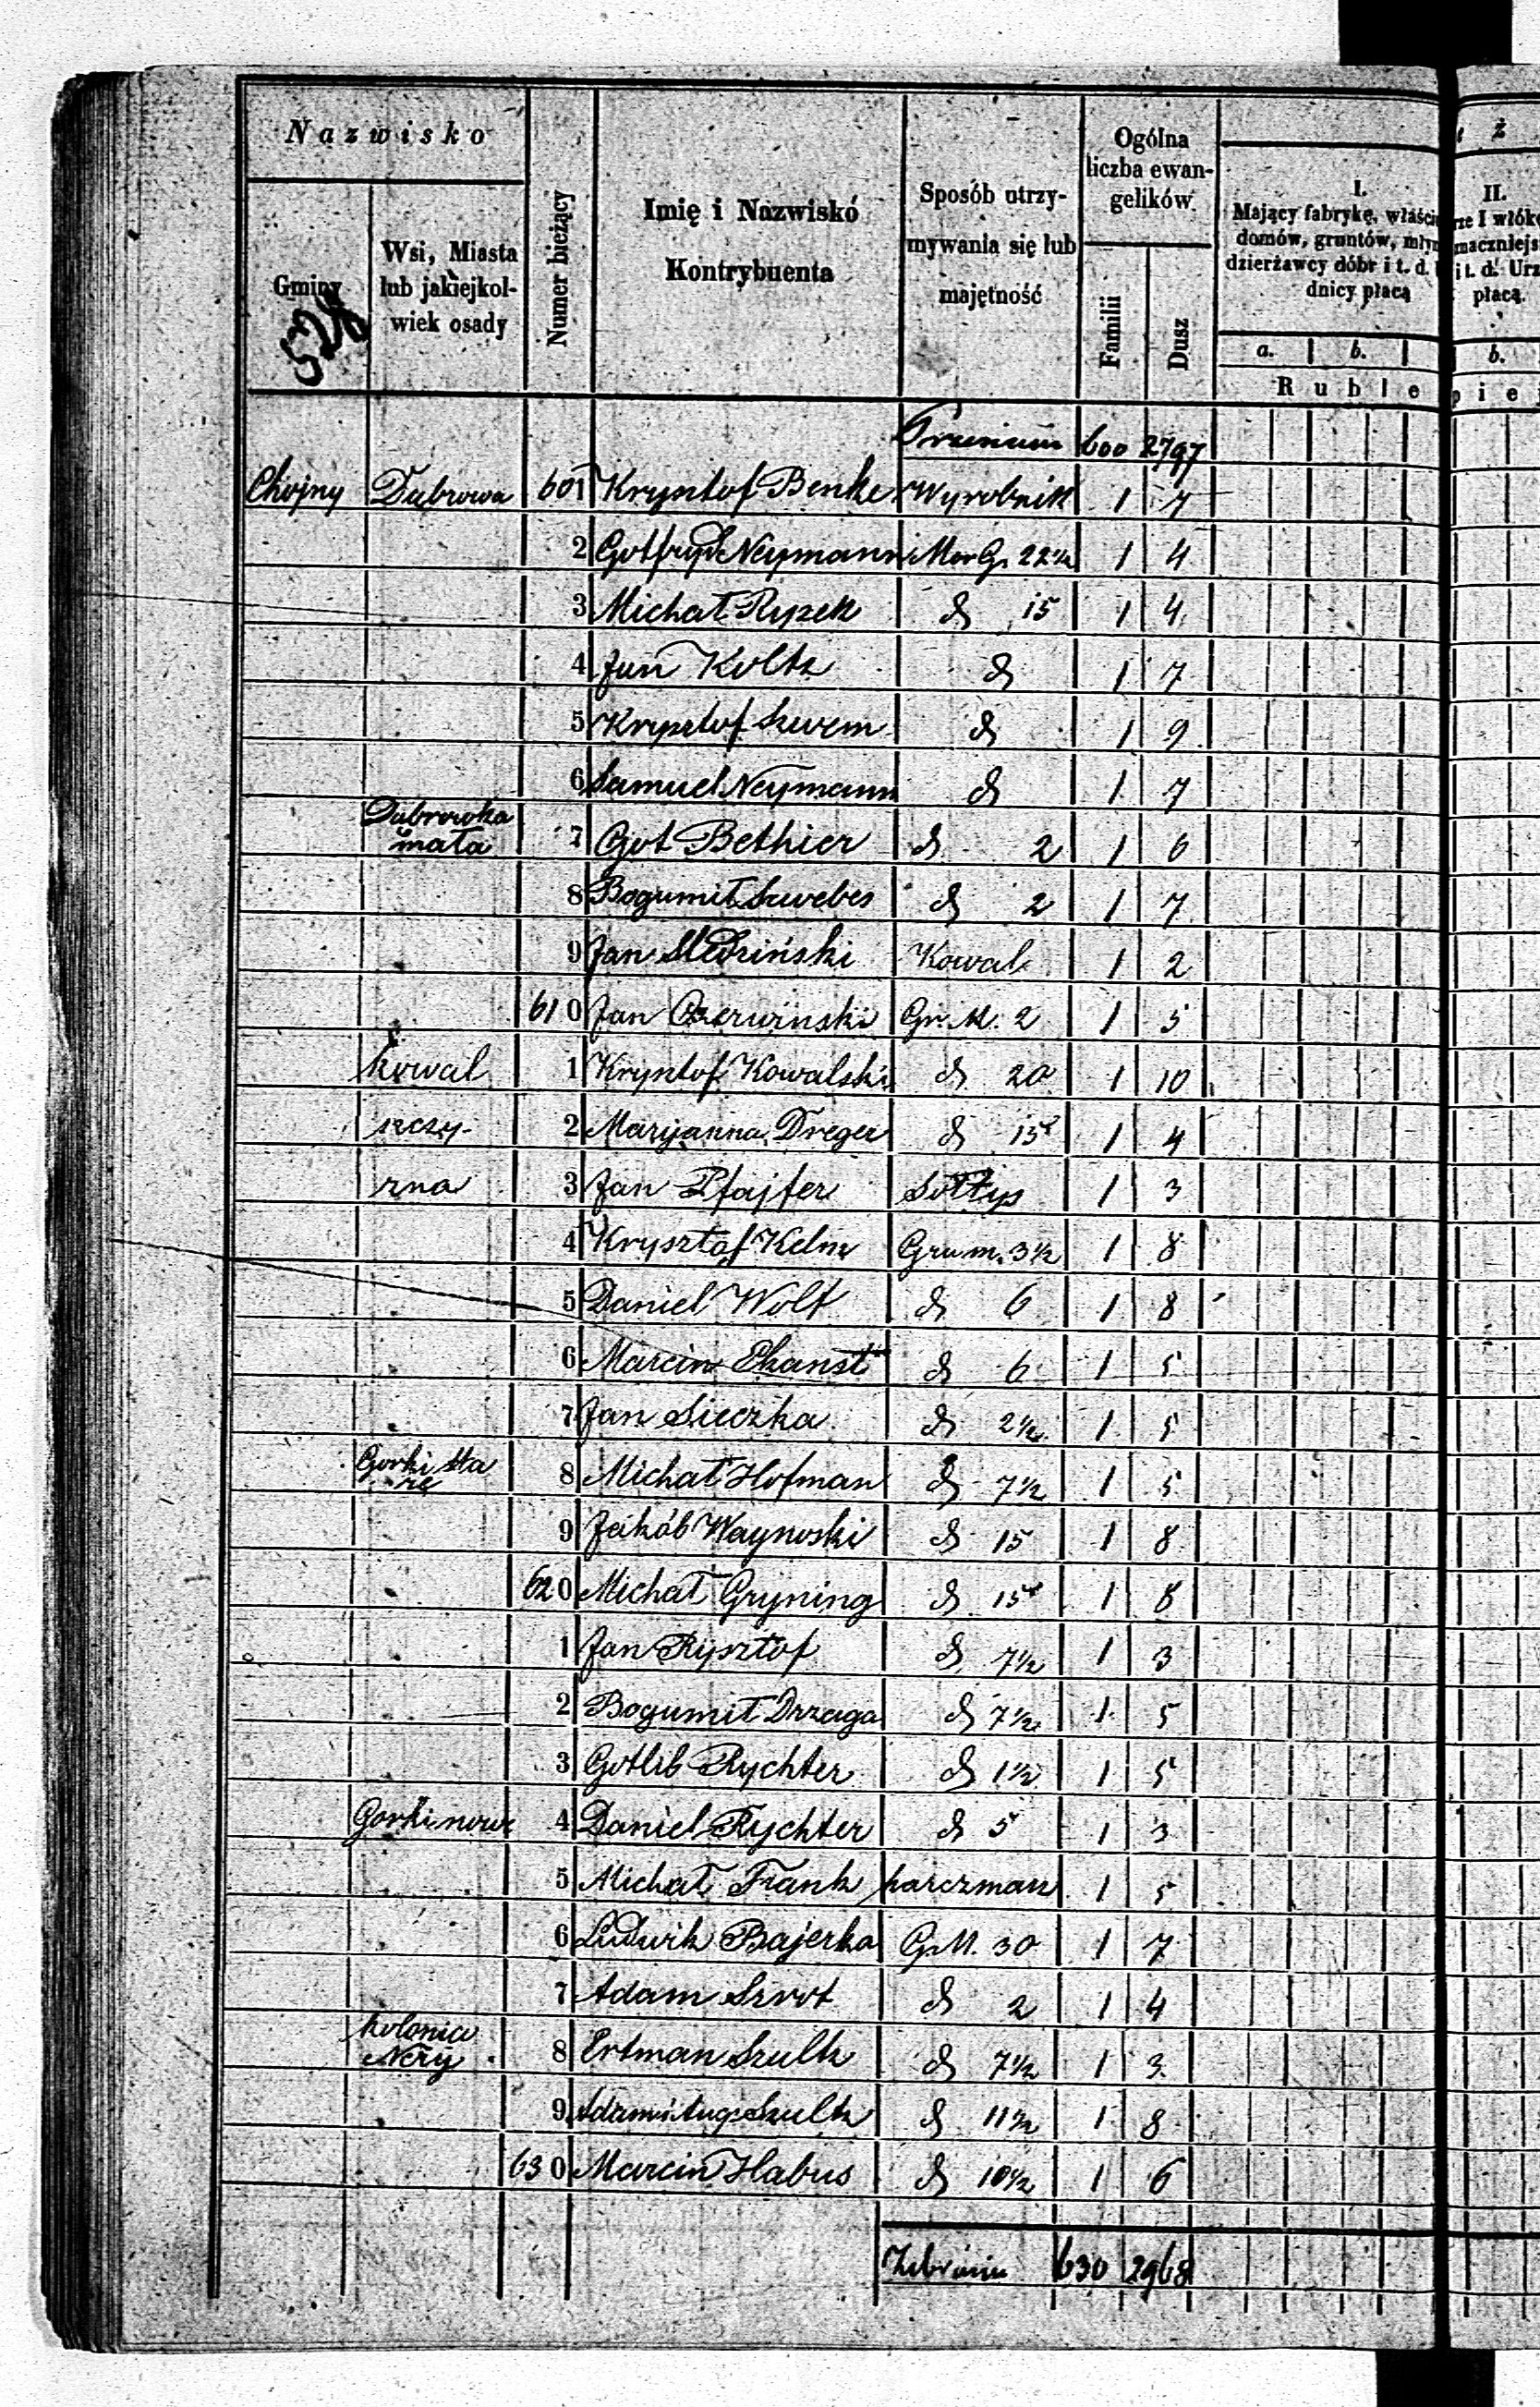 Nazwisko
Gminy
Wsi, Miasta
lub jakiejkol-
wiek osady
Numer bieżący
Imię i Nazwiskó
Kontrybuenta
Sposób utrzy-
mywania się lub
majętność
Ogólna
liczba ewan-
gelików
Familii
Dusz
I.
Mający fabrykę, właści
domów, gruntów, młyn
dzierżawcy dóbr i t. d.
dnicy płacą
a. b.
Ruble
ż
II.
rze I włók
znaczniejs
i t. d. Urz
płacą.
b.
pie
528
600 2797
Chojny Dubrowa 601 Krysztof Benke Wyrobnik 1 7
2 Gotfryd Neymann Mor Gr 22½ 1 4
3 Michał Ryzek d 15 1 4
4 Jan Koltz d 1 7
5 Krysztof Szwem d 1 9
6 Samuel Neymann d 1 7
Dubrowka
mała 7 Got Bethier d 2 1 6
8 Bogumił Szwebes d 2 1 7
9 Jan Śledziński Kowal 1 2
610 Jan Czerwinski Gr. M. 2 1 5
Kowal 1 Krysztof Kowalski d 20 1 10
szczy- 2 Maryanna Dreger d 15 1 4
zna 3 Jan Pfajfer Sołtys 1 3
4 Krysztof Kelm Gru m. 3½ 1 8
5 Daniel Wolf d 6 1 8
6 Marcin d 6 1 5
7 Jan Sieczka d 2½ 1 5
Gorki sta
re 8 Michał Hofman d 7½ 1 5
9 Jakób Waynoski d 15 1 8
620 Michał Gryning d 15 1 8
1 Jan Rysztof d 7½ 1 3
2 Bogumił Drzaga d 7½ 1 5
3 Gotlib Rychter d 1½ 1 5
Gorki nowe 4 Daniel Rychter d 5 1 3
5 Michał Frank karczmarz 1 5
6 Ludwik Bajerka Gr M. 30 1 7
7 Adam Szrot d 2 1 4
Kolonia
Nery 8 Ertman Szultz d 7½ 1 3
9 Adam i Aug. Szultz d 11½ 1 8
630 Marcin Habus d 10½ 1 6
630 2968